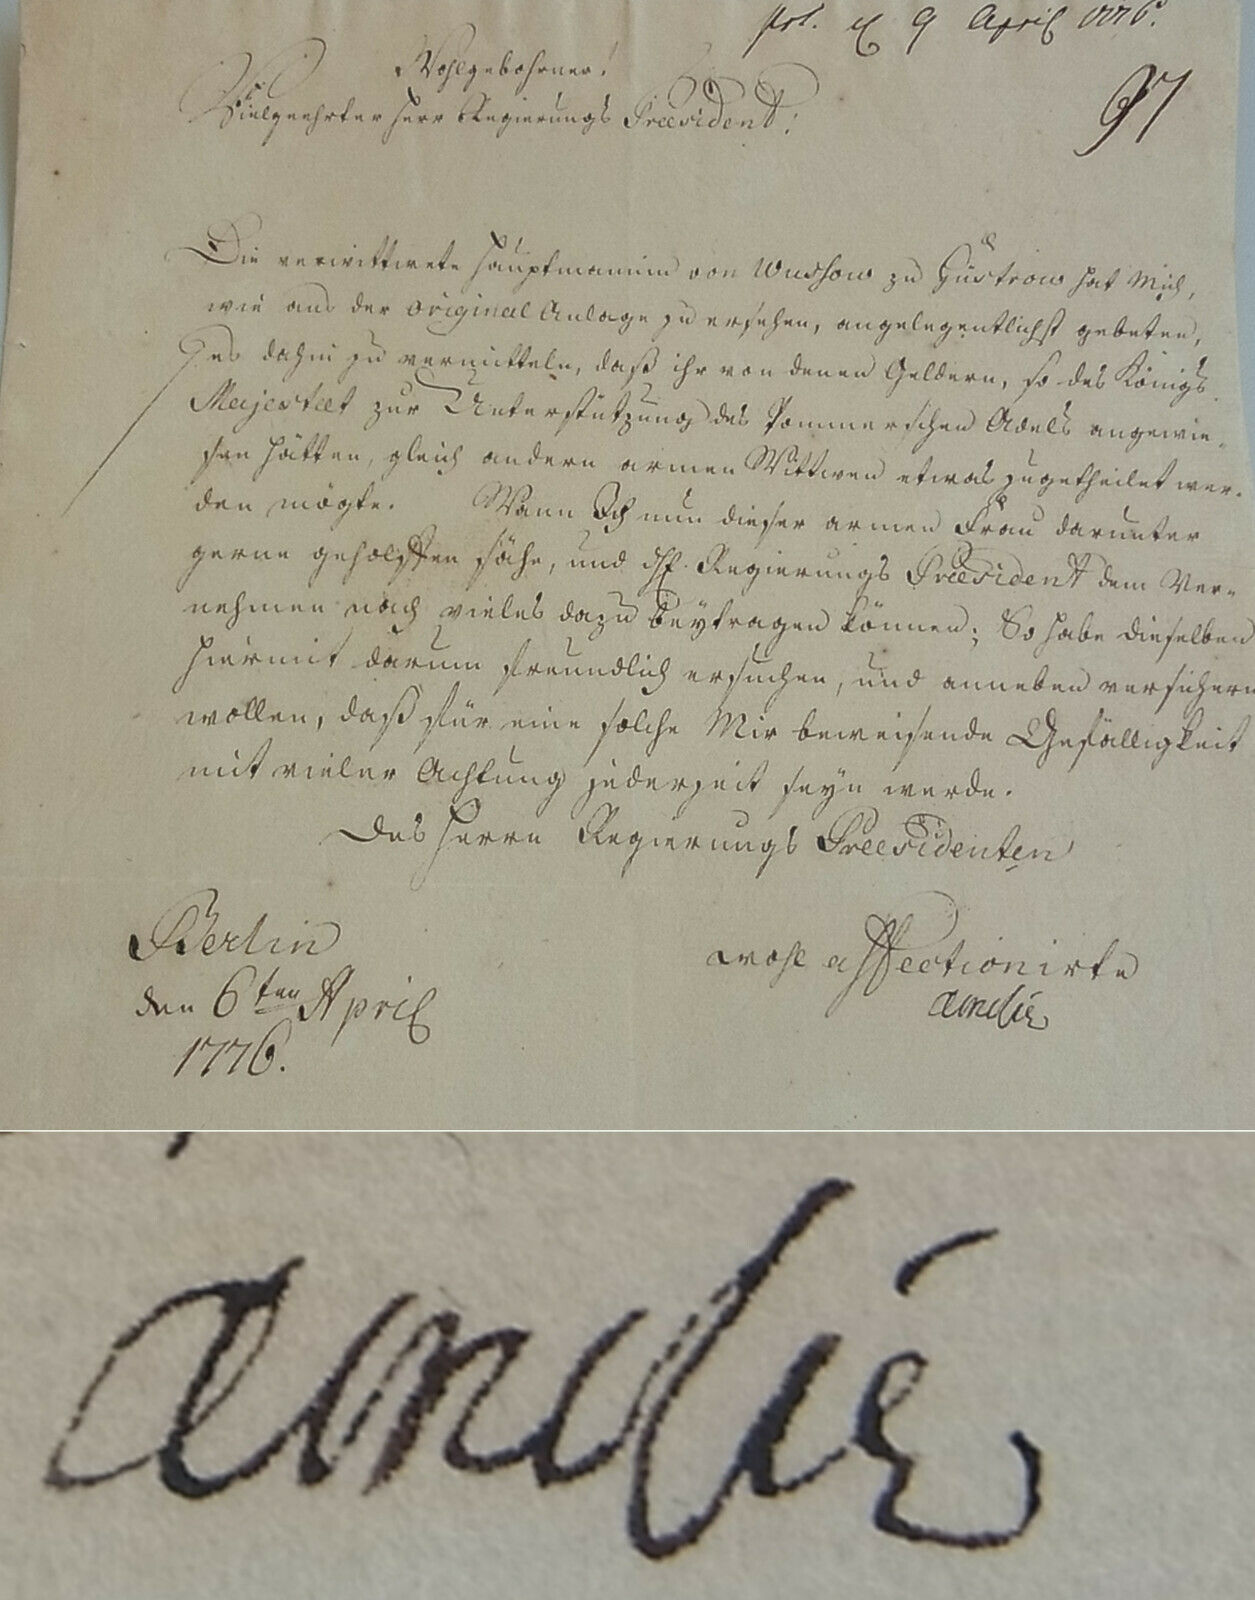 prs. d 9 April 1776.
Wohlgebohrner!
97
Vielgeehrter Herr Regierungs Præsident!
Die verwittwete Hauptmannin von Wussow zu Güstrow hat Mich,
wie aus der original Anlage zu ersehen, angelegentlichst gebeten,
es dahin zu vermitteln, daß ihr von denen Geldern, so des Königs
Majestæt zur Unterstützung des Pommerschen Adels angewie-
sen hätten, gleich andern armen Wittwen etwas zugetheilet wer-
den mögte. Wann Ich nun dieser armen Frau darunter
gerne geholffen sähe, und Regierungs Præsident dem Ver-
nehmen nach vieles dazu beytragen können; So habe dieselben
hiermit darum freundlich ersuchen, und anneben versichern
wollen, daß für eine solche Mir beweisende Gefälligkeit
mit vieler Achtung jederzeit seyn werde.
Des Herrn Regierungs Præsidenten
Berlin
den 6ten April
1776.
wohl affectionirte
amelie
amelie